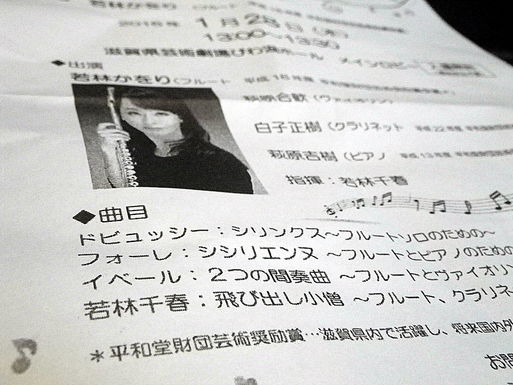 若林かをり
2016年 1月28日（木）
13:00～13:30
滋賀県芸術劇場びわ湖ホール メインロビー
◆出演
若林かをり（フルート 平成15年度
萩原合歓（ヴァイオリン）
白子正樹（クラリネット 平成22年度
萩原吉樹（ピアノ 平成13年度
指揮：若林千春
◆曲目
ドビュッシー：シリンクス～フルートソロのための～
フォーレ：シシリエンヌ ～フルートとピアノのための
イベール：２つの間奏曲 ～フルートとヴァイオリン
若林千春：飛び出し小僧 ～フルート、クラリネ
＊平和堂財団芸術奨励賞…滋賀県内で活躍し、将来国内外
お問